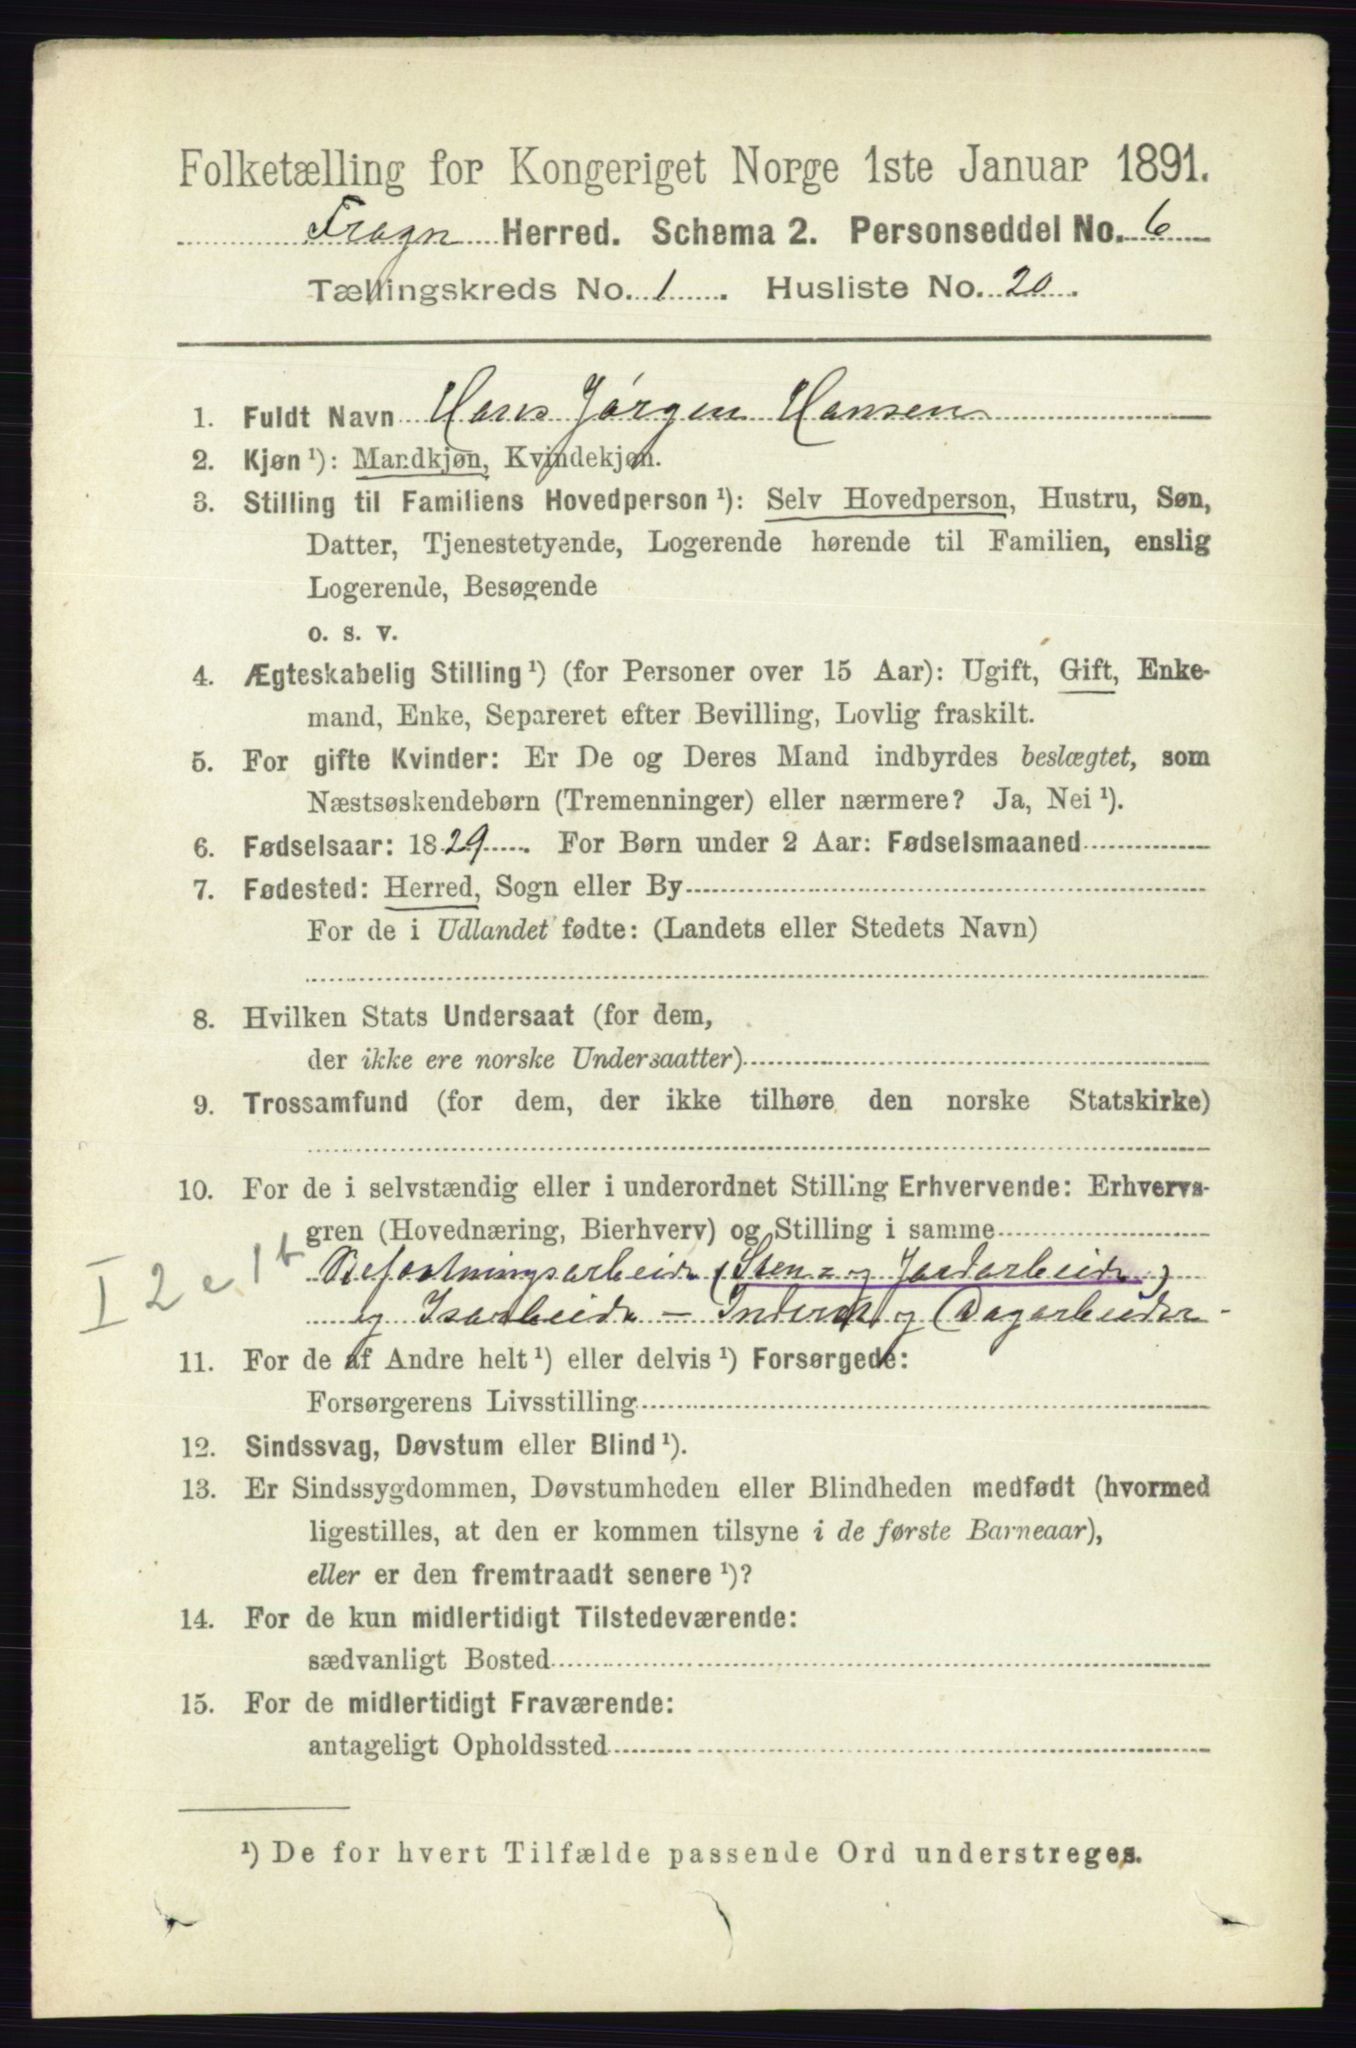 Folketælling for Kongeriget Norge 1ste Januar 1891.
Frogn Herred. Schema 2. Personseddel No. 6
Tællingskreds No. 1. Husliste No. 20.
1. Fuldt Navn Hans Jørgen Hansen
2. Kjøn ¹): Mandkjøn, Kvindekjøn.
3. Stilling til Familiens Hovedperson ¹): Selv Hovedperson, Hustru, Søn,
Datter, Tjenestetyende, Logerende hørende til Familien, enslig
Logerende, Besøgende
o. s. v.
4. Ægteskabelig Stilling ¹) (for Personer over 15 Aar): Ugift, Gift, Enke-
mand, Enke, Separeret efter Bevilling, Lovlig fraskilt.
5. For gifte Kvinder: Er De og Deres Mand indbyrdes beslægtet, som
Næstsøskendebørn (Tremenninger) eller nærmere? Ja, Nei ¹).
6. Fødselsaar: 1829. For Børn under 2 Aar: Fødselsmaaned
7. Fødested: Herred, Sogn eller By
For de i Udlandet fødte: (Landets eller Stedets Navn)
8. Hvilken Stats Undersaat (for dem,
der ikke ere norske Undersaatter)
9. Trossamfund (for dem, der ikke tilhøre den norske Statskirke)
10. For de i selvstændig eller i underordnet Stilling Erhvervende: Erhvervs-
gren (Hovednæring, Bierhverv) og Stilling i samme
I 2 e 1 b (Sten- og Jordarbeide)
og Isarbeide - og Dagarbeider -
11. For de af Andre helt ¹) eller delvis ¹) Forsørgede:
Forsørgerens Livsstilling
12. Sindssvag, Døvstum eller Blind ¹).
13. Er Sindssygdommen, Døvstumheden eller Blindheden medfødt (hvormed
ligestilles, at den er kommen tilsyne i de første Barneaar),
eller er den fremtraadt senere ¹)?
14. For de kun midlertidigt Tilstedeværende:
sædvanligt Bosted
15. For de midlertidigt Fraværende:
antageligt Opholdssted
¹) De for hvert Tilfælde passende Ord understreges.